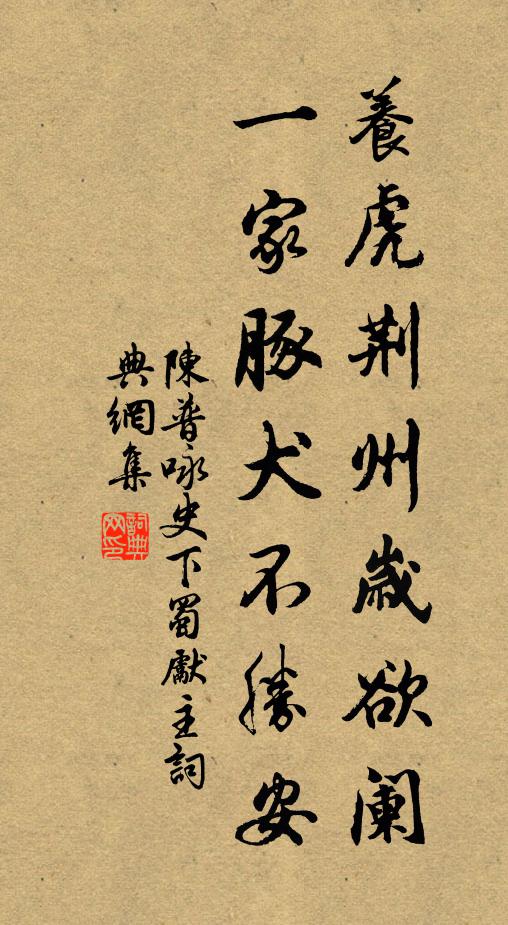 養虎荆州歲欲阑
一家豚犬不勝安
陳普咏史下蜀獻主詞
典網集
詞典网印